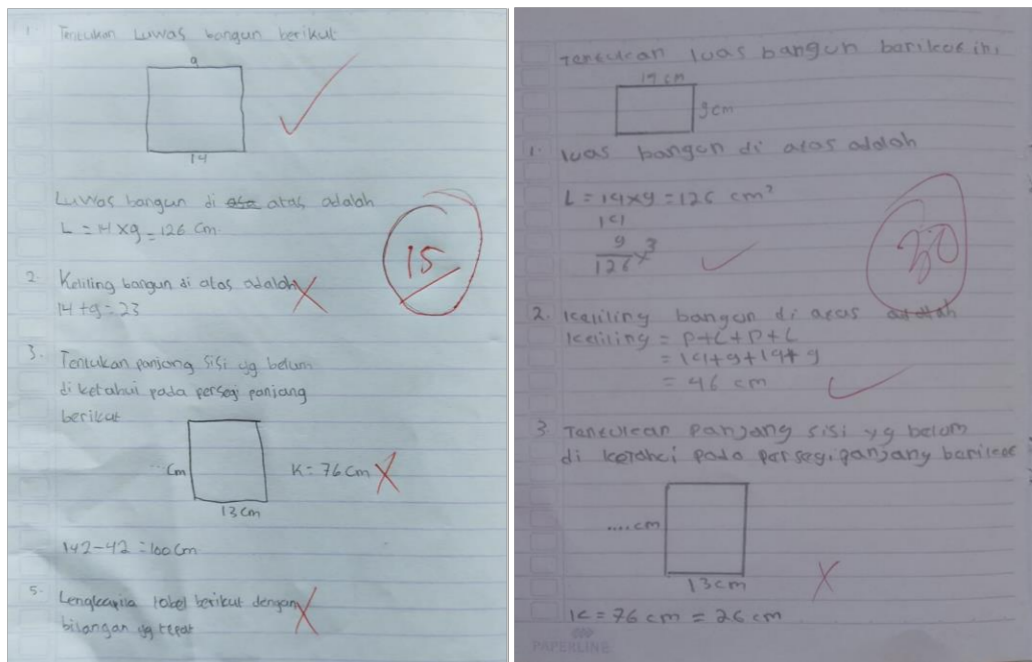 1. Tentukan Luwas bangun berikut
9
14
Luwas bangun di atas adalah
L = 14 x 9 = 126 Cm
15
2. Keliling bangun di atas adalah
14 + 9 = 23
3. Tentukan panjang sisi yg belum
di ketahui pada persegi panjang
berikut
... cm
K = 76 cm
13 cm
142 - 42 = 100 cm
5. Lengkapila tabel berikut dengan
bilangan yg tepat
Tentukan luas bangun berikut ini
14 cm
9 cm
1. luas bangun di atas adalah
L = 14 x 9 = 126 cm²
14
9
126 x 3
30
2. keliling bangun di atas adalah
keliling = P+L+P+L
= 14+9+14+9
= 46 cm
3. Tentukan panjang sisi yg belom
di ketahui pada persegi panjang berikut
.... cm
13 cm
K = 76 cm = 26 cm
PAPERLINE